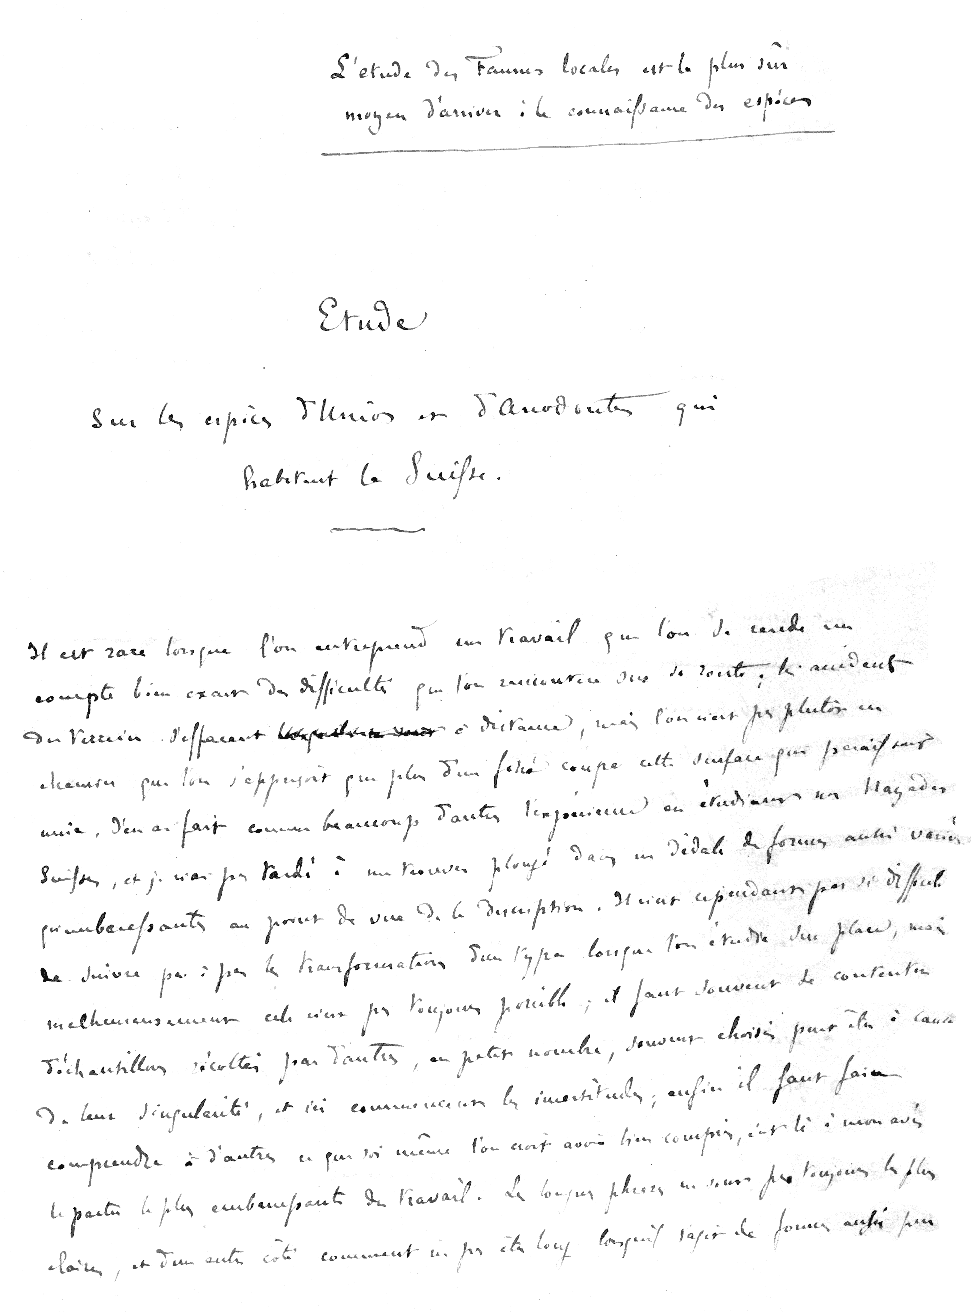 L'étude des Faunes locales est le plus sûr
moyen d'arriver à la connaissance des espèces
Etude
Sur les espèces d'Unios et d'Anodontes qui
habitent la Suisse.
Il est rare lorsque l'on entreprend un travail que l'on se rende un
compte bien exact des difficultés que l'on rencontrera sur sa route; les accidents
du terrain s'effacent à distance, mais l'on n'est pas plutôt en
chemin que l'on s'apperçoit que plus d'un fossé coupe cette surface qui paraissait
unie. J'en ai fait comme beaucoup d'autres l'expérience en étudiant nos Nayades
Suisses, et je n'ai pas tardé à me trouver plongé dans un dédale de formes aussi variées
qu'embarassantes au point de vue de la description. Il n'est cependant pas si difficile
de suivre pas à pas les transformations d'un type lorsque l'on étudie sur place, mais
malheureusement cela n'est pas toujours possible; il faut souvent se contenter
d'échantillons récoltés par d'autres, en petit nombre, souvent choisis peut être à cause
de leur singularité, et ici commencent les incertitudes; enfin il faut faire
comprendre à d'autres ce que soi même l'on croit avoir bien compris, c'est là à mon avis
la partie la plus embarassante du travail. Les longues phrases ne sont pas toujours les plus
claires, et d'un autre côté comment ne pas être long lorsqu'il s'agit de formes aussi peu